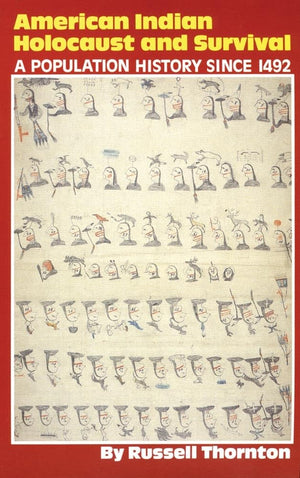 American Indian
Holocaust and Survival
A POPULATION HISTORY SINCE 1492
By Russell Thornton